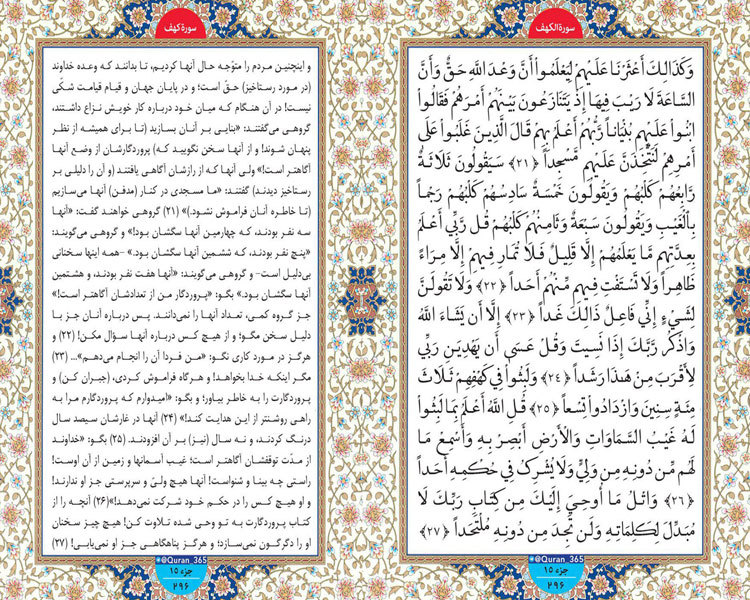 سورة الكهف
وَكَذَالِكَ أَعْثَرْنَا عَلَيْهِمْ لِيَعْلَمُواْ أَنَّ وَعْدَ اللَّهِ حَقٌّ وَأَنَّ
السَّاعَةَ لَا رَيْبَ فِيهَا إِذْ يَتَنَازَعُونَ بَيْنَهُمْ أَمْرَهُمْ فَقَالُواْ
ابْنُواْ عَلَيْهِم بُنْيَاناً رَّبُّهُمْ أَعْلَمُ بِهِمْ قَالَ الَّذِينَ غَلَبُواْ عَلَى
أَمْرِهِمْ لَنَتَّخِذَنَّ عَلَيْهِم مَّسْجِداً ﴿۲۱﴾ سَيَقُولُونَ ثَلَاثَةٌ
رَّابِعُهُمْ كَلْبُهُمْ وَيَقُولُونَ خَمْسَةٌ سَادِسُهُمْ كَلْبُهُمْ رَجْماً
بِالْغَيْبِ وَيَقُولُونَ سَبْعَةٌ وَثَامِنُهُمْ كَلْبُهُمْ قُل رَّبِّي أَعْلَمُ
بِعِدَّتِهِم مَّا يَعْلَمُهُمْ إِلَّا قَلِيلٌ فَلَا تُمَارِ فِيهِمْ إِلَّا مِرَاءً
ظَاهِراً وَلَا تَسْتَفْتِ فِيهِم مِّنْهُمْ أَحَداً ﴿۲۲﴾ وَلَا تَقُولَنَّ
لِشَيْءٍ إِنِّي فَاعِلٌ ذَالِكَ غَداً ﴿۲۳﴾ إِلَّا أَن يَشَاءَ اللَّهُ
وَاذْكُر رَّبَّكَ إِذَا نَسِيتَ وَقُلْ عَسَى أَن يَهْدِيَنِ رَبِّي
لِأَقْرَبَ مِنْ هَذَا رَشَداً ﴿۲۴﴾ وَلَبِثُواْ فِي كَهْفِهِمْ ثَلَاثَ
مِئَةٍ سِنِينَ وَازْدَادُواْ تِسْعاً ﴿۲۵﴾ قُلِ اللَّهُ أَعْلَمُ بِمَا لَبِثُواْ
لَهُ غَيْبُ السَّمَاوَاتِ وَالْأَرْضِ أَبْصِرْ بِهِ وَأَسْمِعْ مَا
لَهُم مِّن دُونِهِ مِن وَلِيٍّ وَلَا يُشْرِكُ فِي حُكْمِهِ أَحَداً
﴿۲۶﴾ وَاتْلُ مَا أُوحِيَ إِلَيْكَ مِن كِتَابِ رَبِّكَ لَا
مُبَدِّلَ لِكَلِمَاتِهِ وَلَن تَجِدَ مِن دُونِهِ مُلْتَحَداً ﴿۲۷﴾
@Quran_365
جزء ۱۵
۲۹۶
سورة کهف
و اینچنین مردم را متوجّه حال آنها کردیم، تا بدانند که وعده خداوند
(در مورد رستاخیز) حقّ است؛ و در پایان جهان و قیام قیامت شکّی
نیست! در آن هنگام که میان خود درباره کار خویش نزاع داشتند،
گروهی می‌گفتند: «بنایی بر آنان بسازید (تا برای همیشه از نظر
پنهان شوند! و از آنها سخن نگویید که) پروردگارشان از وضع آنها
آگاهتر است!» ولی آنها که از رازشان آگاهی یافتند (و آن را دلیلی بر
رستاخیز دیدند) گفتند: «ما مسجدی در کنار (مدفن) آنها می‌سازیم
(تا خاطره آنان فراموش نشود.)» (۲۱) گروهی خواهند گفت: «آنها
سه نفر بودند، که چهارمین آنها سگشان بود!» و گروهی می‌گویند:
«پنچ نفر بودند، که ششمین آنها سگشان بود.» -همه اینها سخنانی
بی‌دلیل است- و گروهی می‌گویند: «آنها هفت نفر بودند، و هشتمین
آنها سگشان بود.» بگو: «پروردگار من از تعدادشان آگاهتر است!»
جز گروه کمی، تعداد آنها را نمی‌دانند. پس درباره آنان جز با
دلیل سخن مگو؛ و از هیچ کس درباره آنها سؤال مکن! (۲۲) و
هرگز در مورد کاری نگو: «من فردا آن را انجام می‌دهم»... (۲۳)
مگر اینکه خدا بخواهد! و هرگاه فراموش کردی، (جبران کن) و
پروردگارت را به خاطر بیاور؛ و بگو: «امیدوارم که پروردگارم مرا به
راهی روشنتر از این هدایت کند!» (۲۴) آنها در غارشان سیصد سال
درنگ کردند، و نه سال (نیز) بر آن افزودند. (۲۵) بگو: «خداوند
از مدّت توقفشان آگاهتر است؛ غیب آسمانها و زمین از آن اوست!
راستی چه بینا و شنواست! آنها هیچ ولیّ و سرپرستی جز او ندارند!
و او هیچ کس را در حکم خود شرکت نمی‌دهد!»(۲۶) آنچه را از
کتاب پروردگارت به تو وحی شده تلاوت کن! هیچ چیز سخنان
او را دگرگون نمی‌سازد؛ و هرگز پناهگاهی جز او نمی‌یابی! (۲۷)
@Quran_365
جزء ۱۵
۲۹۶